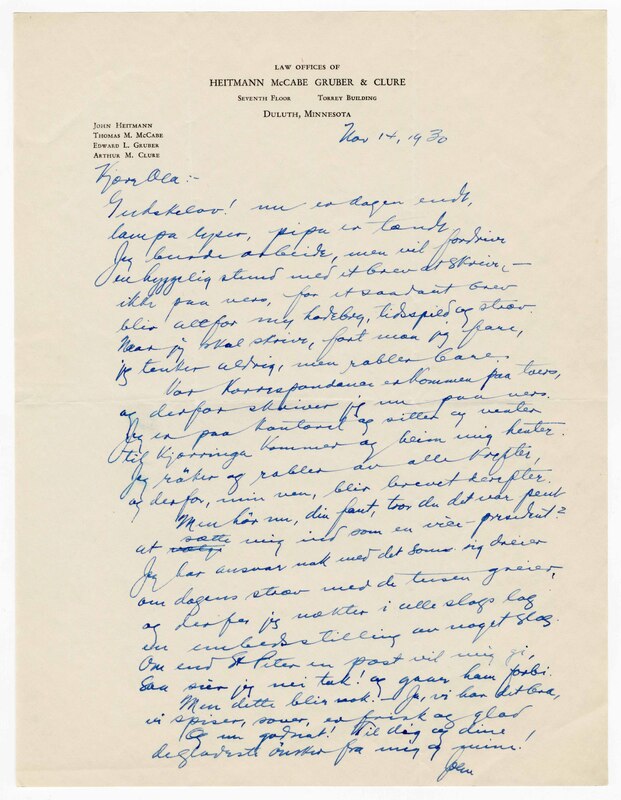 LAW OFFICES OF
HEITMANN McCABE GRUBER & CLURE
SEVENTH FLOOR TORREY BUILDING
DULUTH, MINNESOTA
JOHN HEITMANN
THOMAS M. McCABE
EDWARD L. GRUBER
ARTHUR M. CLURE
Nov 14, 1930
Kjære Ola:-
Gudskelov! nu er dagen endt,
lampa lyser, pipa er tændt
Jeg burde arbeide, men vil fordrive
en hyggelig stund med it brev at skrive,-
ikke paa vers, for it saadant brev
blir altfor my hodebry, tidsspild og stræv.
Naar jeg skal skrive, fort maa jeg fare,
jeg tenker aldrig, men rabler bare.
Vor Korrespondance er kommen paa tvers,
og derfor skriver jeg nu paa vers.
Jeg er paa Kontoret og sitter og venter
til Kjærringa kommer og heim mig henter.
Jeg räker og rabler av alle Kræfter,
og derfor, min ven, blir brevet derefter.
Men hör nu, din fant, tror du det var pent
at sætte mig ind som en vice-president?
Jeg har ansvar nok med det som sig dreier
om dagens stræv med de tusen greier,
og derfor jeg nekter i alle slags lag
en embedsstilling av noget slag.
Om end St Peter en post vil mig gi,
saa sier jeg nei tak! og gaar ham forbi.
Men dette blir nok! - Ja, vi har det bra,
vi spiser, sover, er frisk og glad
Og nu godnat! Til dig og dine
de gladeste önsker fra mig og mine!
John